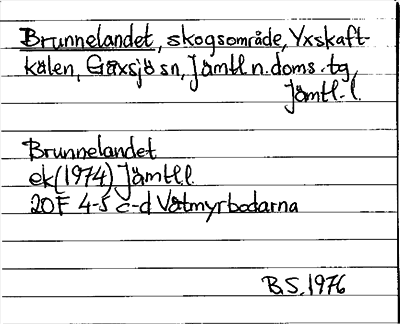 Brunnelandet, skogsområde, Yxskaft-
kälen, Gåxsjö sn, Jämtl n. doms. tg,
Jämtl. l.
Brunnelandet
ek (1974) Jämtl l.
20F 4-5 c-d Våtmyrbodarna
B.S. 1976